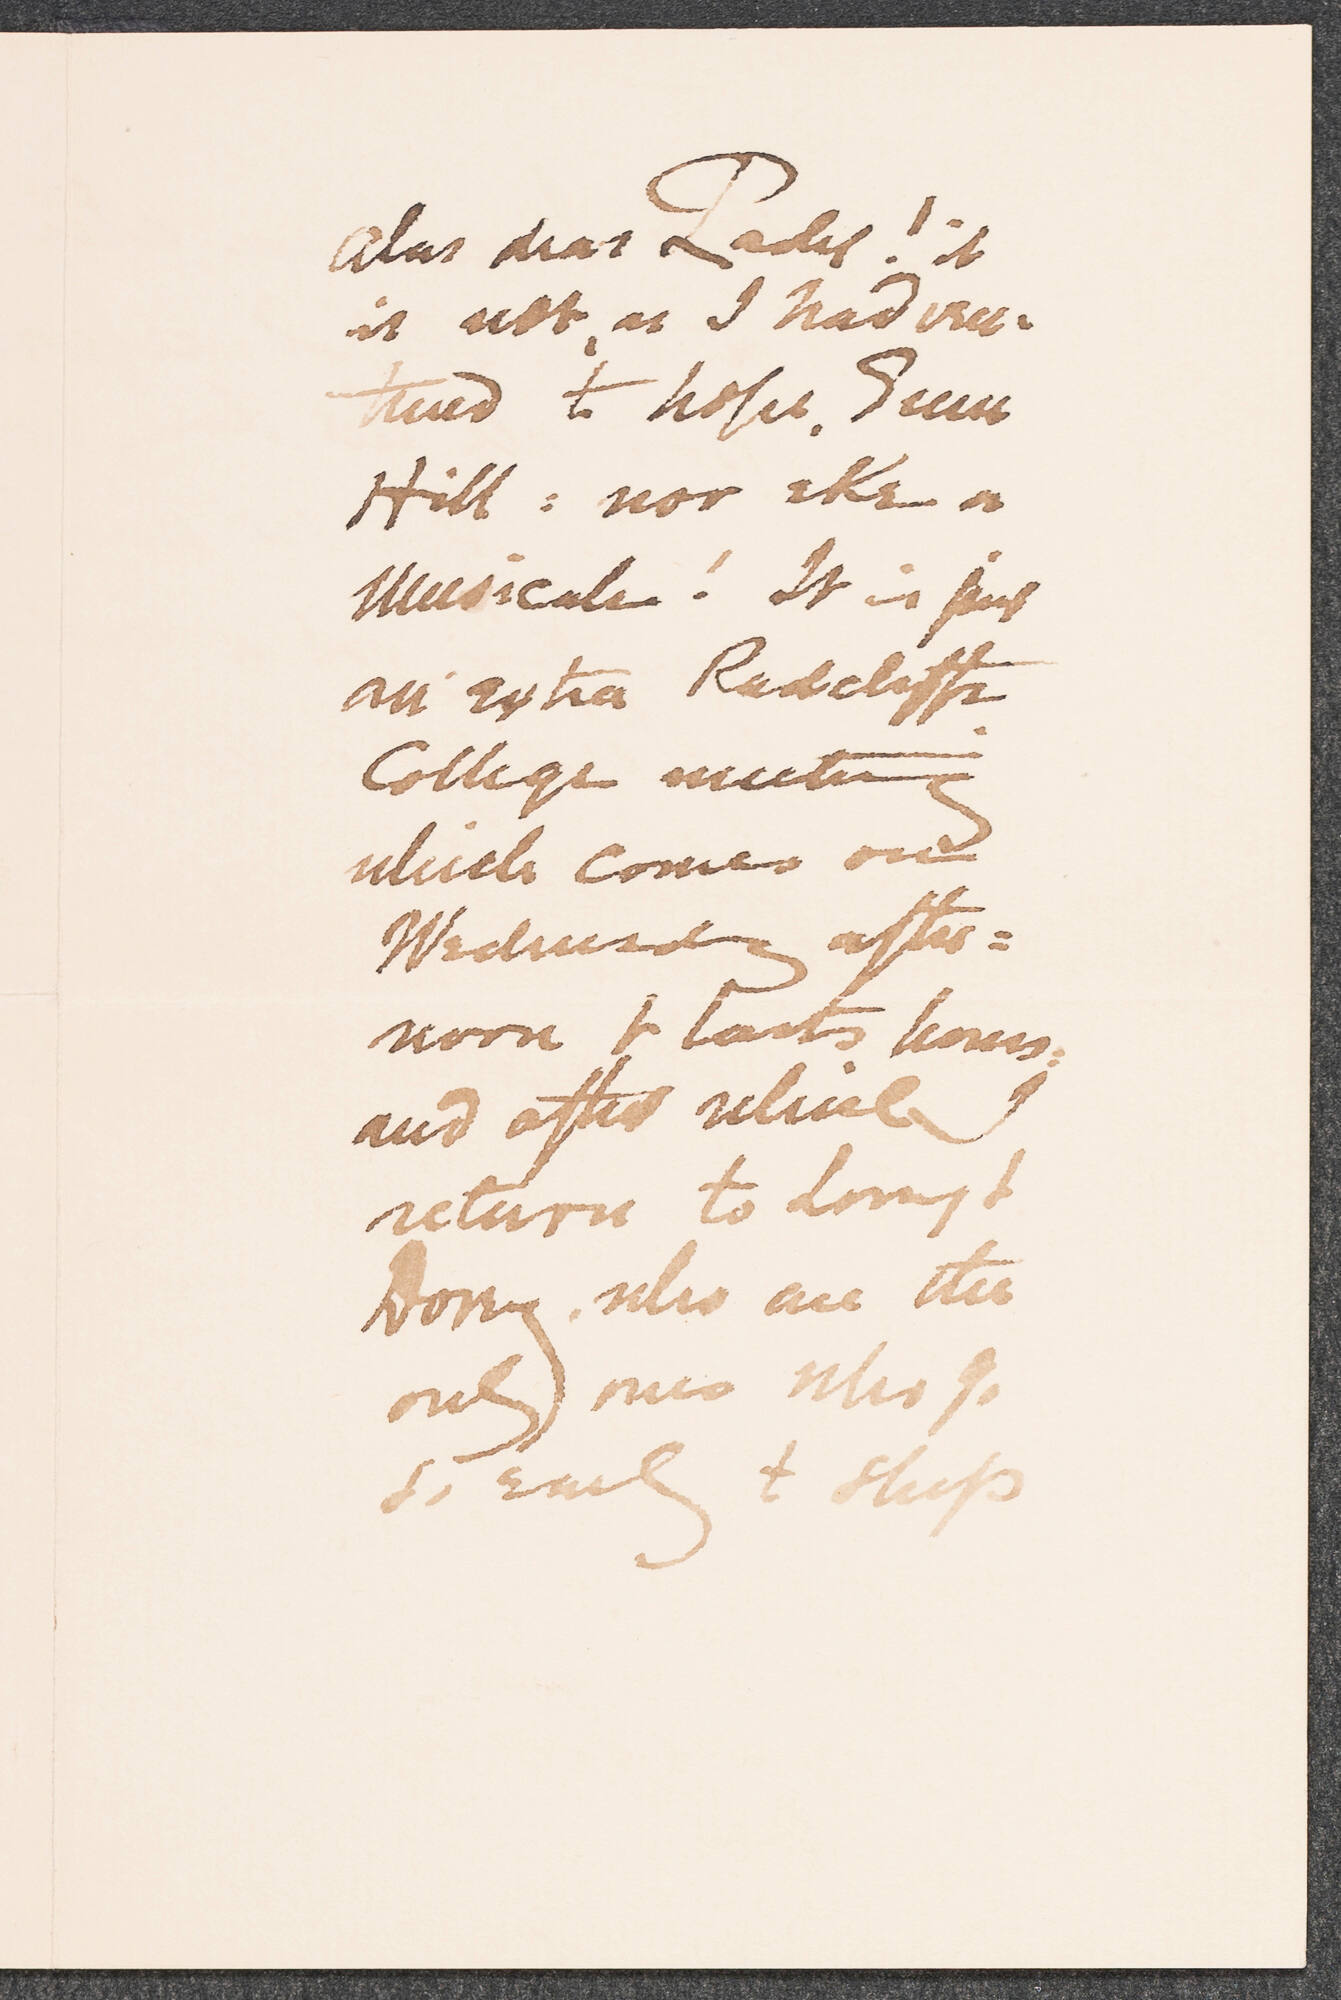 Alas dear Lady! it
is not, as I had ven-
tured to hope, Green
Hill: nor eke a
Musicale! It is just
an extra Radcliffe
College meeting
which comes on
Wednesday after=
noon & lasts hours:
and after which I
return to Lorry &
Dorry, who are the
only ones who go
so early & sleep